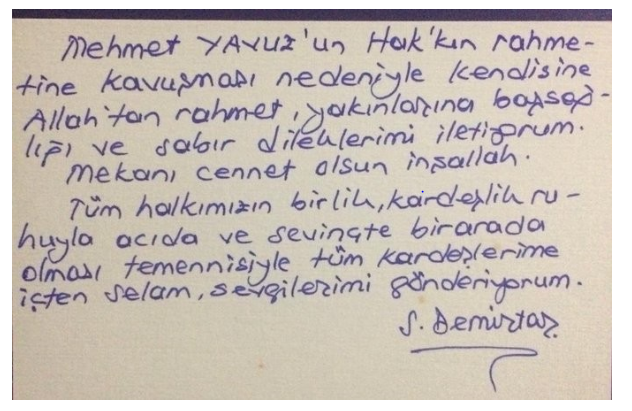 Mehmet YAVUZ'un Hak'kın rahme-
tine kavuşması nedeniyle kendisine
Allah'tan rahmet, yakınlarına başsağ-
lığı ve sabır dileklerimi iletiyorum.
Mekanı cennet olsun inşallah.
Tüm halkımızın birlik, kardeşlik ru-
huyla acıda ve sevinçte birarada
olması temennisiyle tüm kardeşlerime
içten selam, sevgilerimi gönderiyorum.
S. Demirtaş